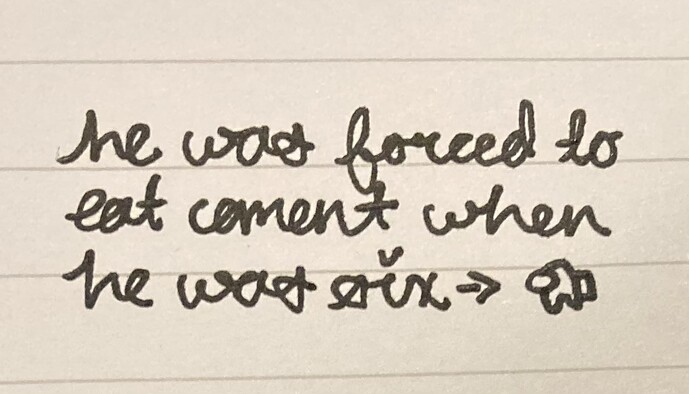 he was forced to
eat coment when
he was six →